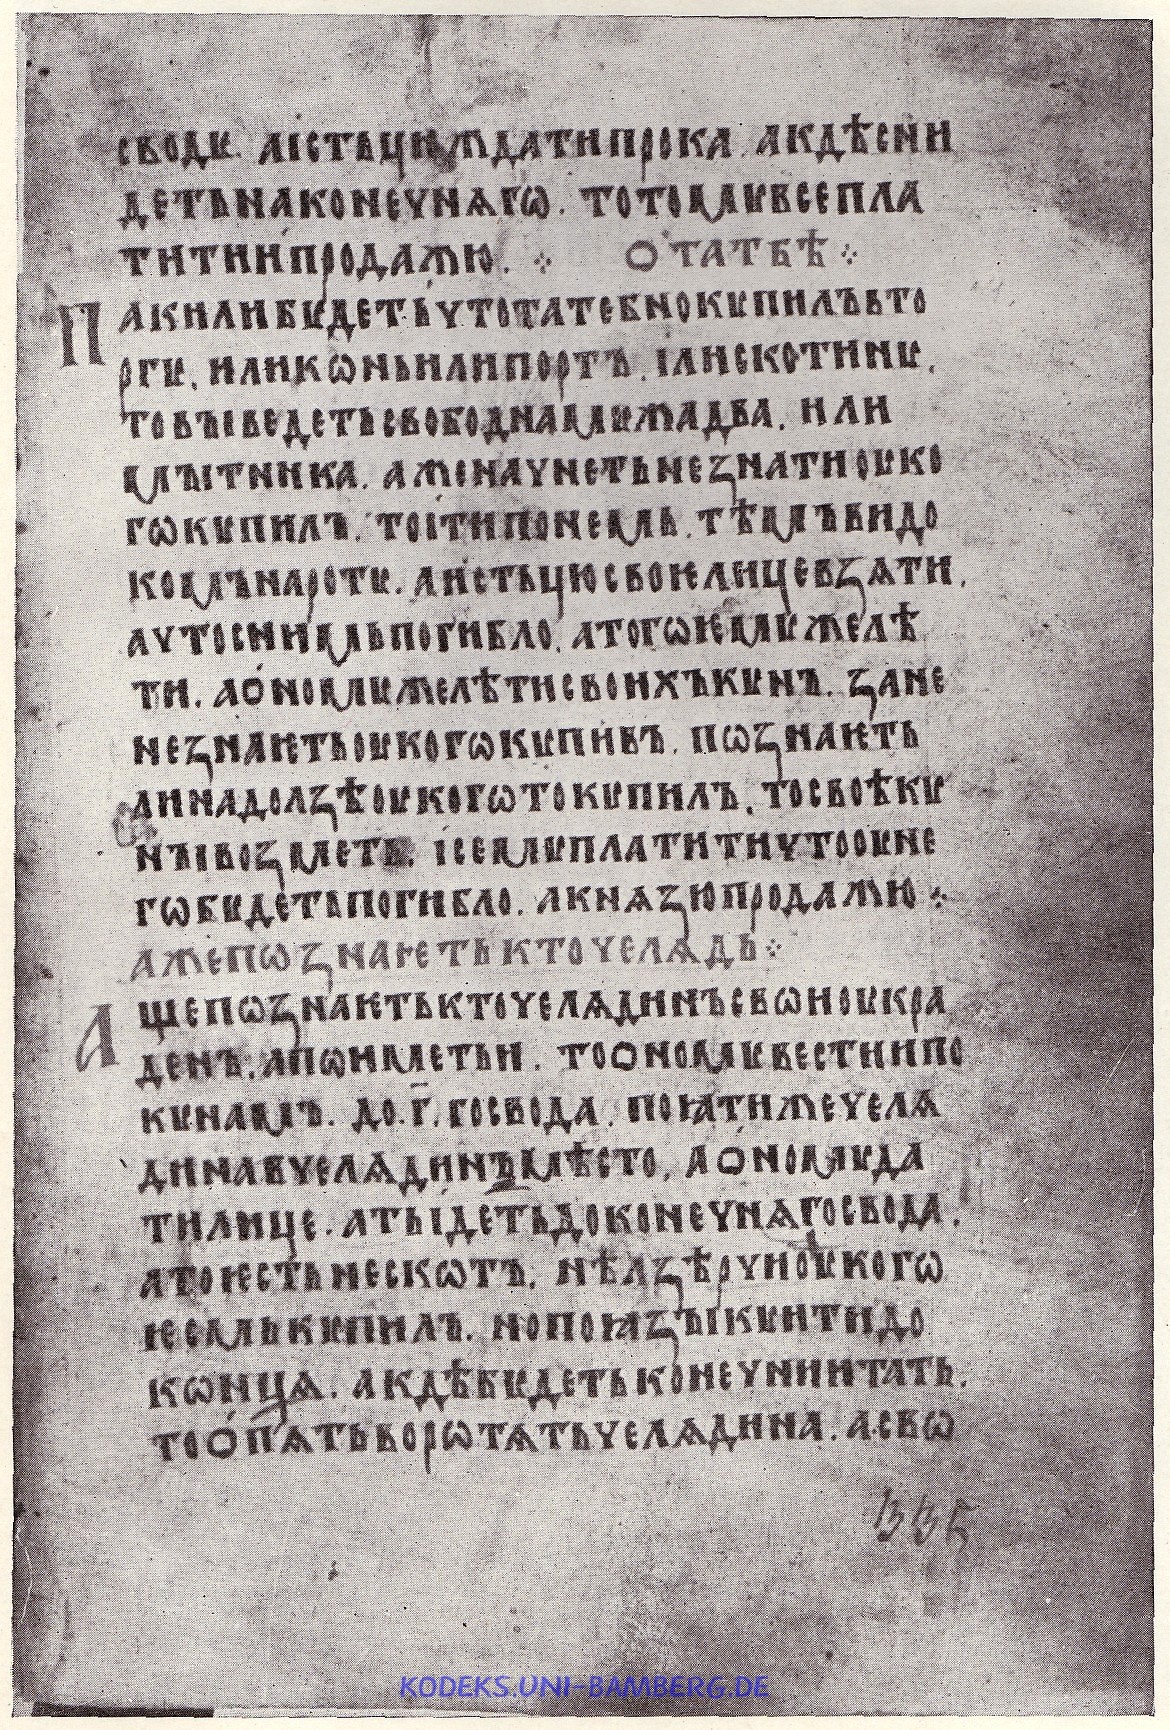 сводꙋ. аістьцю ждатипрока. акдѣсни
детьнаконечнѧгѡ. тотомꙋвсепла
титиипродажю. ⁘ отатьбѣ⁘
Пакилибꙋдеть чтотатебнокꙋпилъвто
ргꙋ. иликѡньилипортъ. ілискотинꙋ.
товъіведетьсвободнамꙋжадва. или
мъітника. аженачнетьнеꙁнатиоукко
гѡкꙋпилъ. тоітипонемь. тѣмъвидо
комънаротꙋ. аистьцюсвоѥлицевꙁѧти.
ачтоснимьпогибло. атогѡѥмꙋжелѣ
ти. аономꙋжелѣтисвоихъкꙋнъ. ꙁане
неꙁнаѥтьоукогѡкꙋпивъ. пѡꙁнаѥть
линадолꙁѣоукогѡтокꙋпилъ. тосвоѣкꙋ
нъівоꙁметь. ісемꙋплатитичтооуне
гѡбꙋдетьпогибло. акнѧꙁюпродажю⁘
ажепѡꙁнаѥтькточелѧдь⁘
Ащепѡꙁнаѥтькточелѧдинъсвѡиоукра
денъ. апѡиметьи. тоономꙋвестиипо
кꙋнамъ. до.г҃.госвода. поꙗтижечелѧ
динавчелѧдинъмѣсто. аономꙋда
тилице. атьідетьдоконечнѧгосвода.
атоѥстьнескѡтъ. нѣлꙁѣрчиоукогѡ
ѥсмькꙋпилъ. нопоꙗꙁъікꙋитидо
кѡнцѧ. акдѣбꙋдетьконечниитать.
тоопѧтьворѡтѧтьчелѧдина. асвѡ
335
KODEKS.UNI-BAMBERG.DE